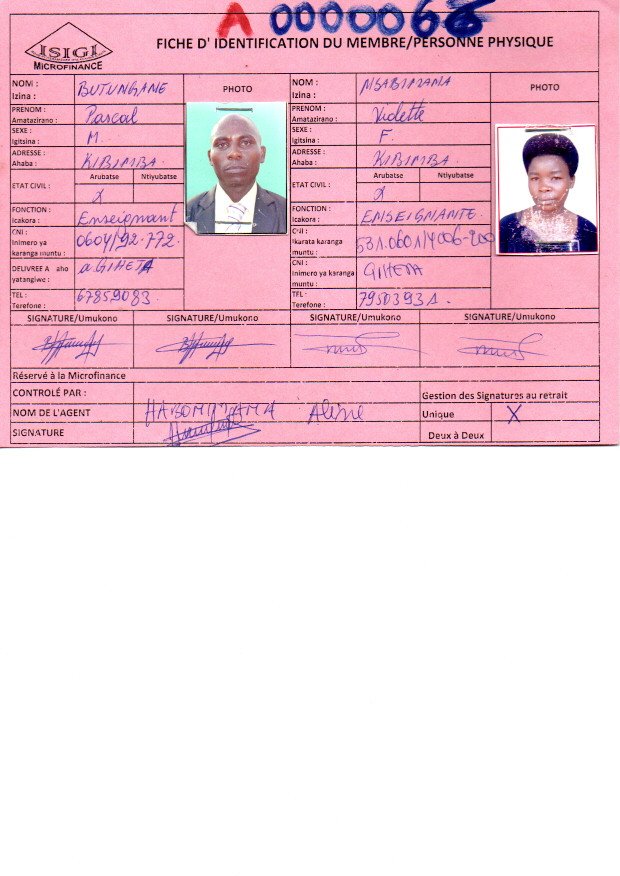 A 0000066
ISIGI
MICROFINANCE
FICHE D' IDENTIFICATION DU MEMBRE/PERSONNE PHYSIQUE
NOM :
Izina :
BUTUNGANE
PHOTO
NOM :
Izina :
NSABIMANA
PHOTO
PRENOM :
Amatazirano :
Pascal
PRENOM :
Amatazirano :
SEXE :
Igitsina :
M.
SEXE :
Igitsina :
F.
ADRESSE :
Ahaba :
KIBIMBA
ADRESSE :
Ahaba :
KIBIMBA
ETAT CIVIL :
Arubatse Ntiyubatse
X
ETAT CIVIL :
Arubatse Ntiyubatse
X
FONCTION :
Icakora :
Enseignant
FONCTION :
Icakora :
ENSEIGNANTE
CNI :
Inimero ya
karanga muntu :
0604/92.772.
Ikarata karanga
muntu :
531.0601/4006-200
DELIVREE A aho
yatangiwe :
a GIHETA
CNI :
Inimero ya karanga
muntu :
GIHETA
TEL :
Terefone :
67859083
Terefone :
79503931.
SIGNATURE/Umukono SIGNATURE/Umukono SIGNATURE/Umukono SIGNATURE/Umukono
Réservé à la Microfinance
CONTROLÉ PAR :
Gestion des Signatures au retrait
NOM DE L'AGENT
Aline
Unique X
SIGNATURE
Deux à Deux